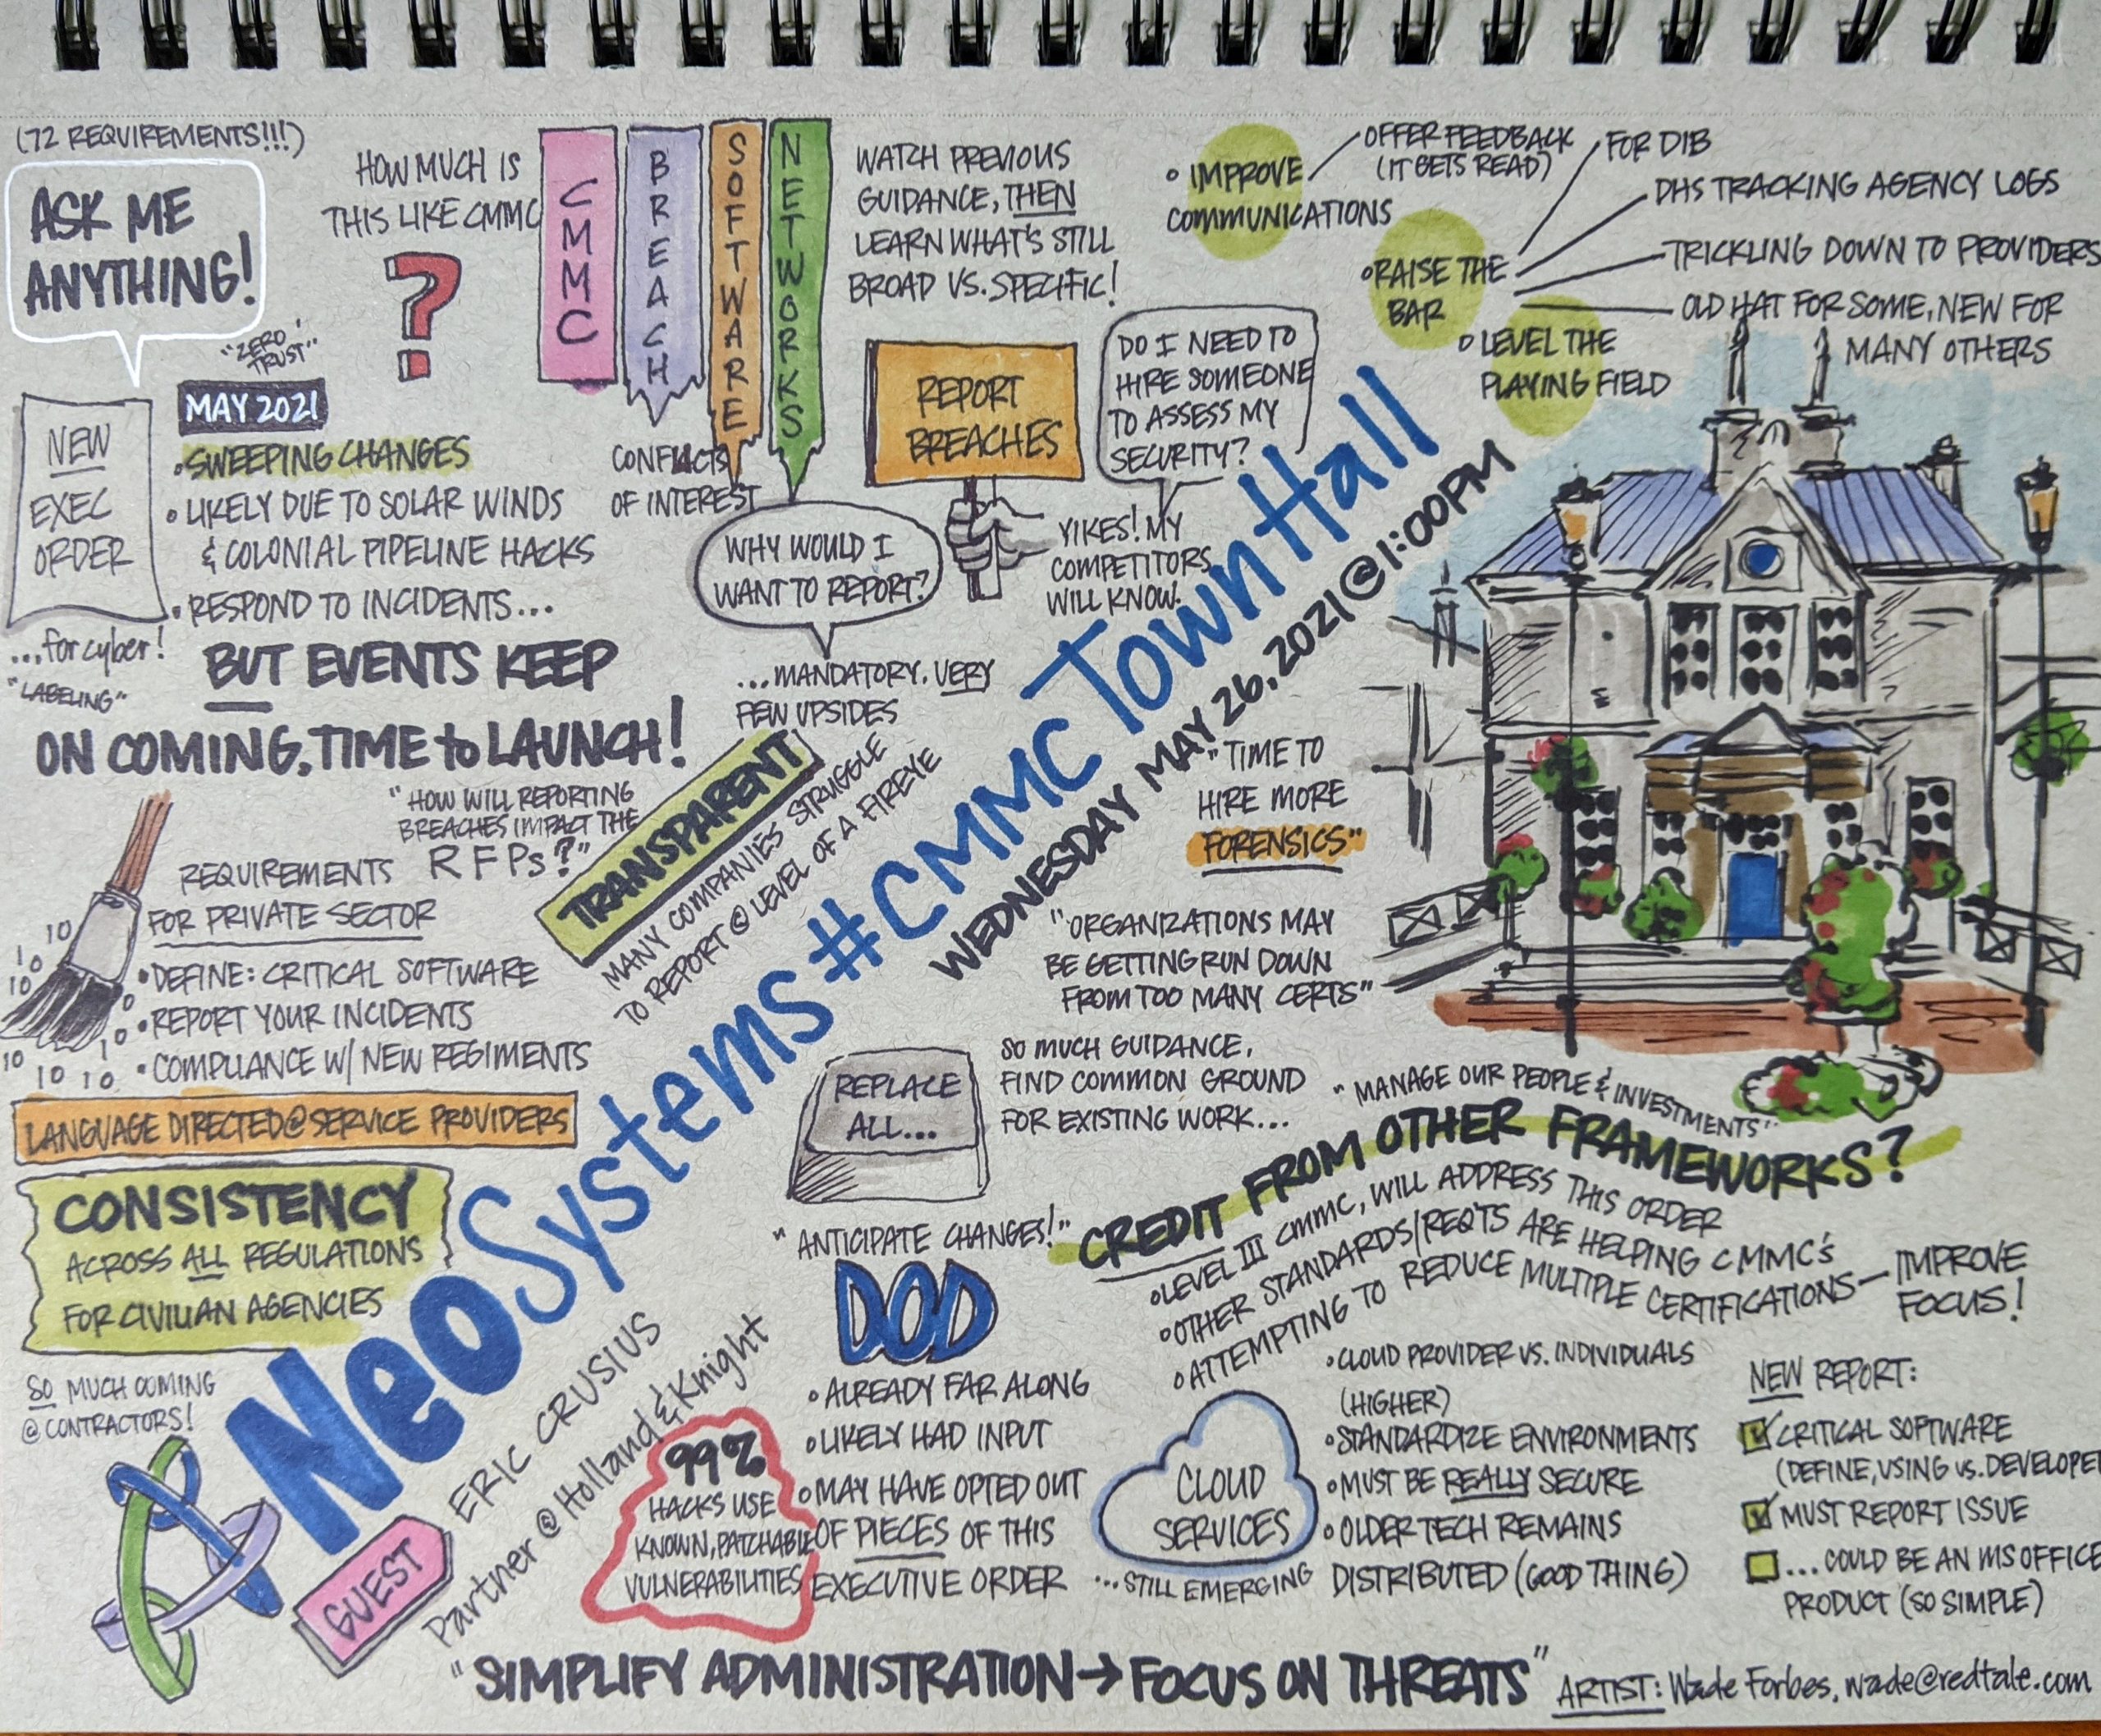 (72 REQUIREMENTS!!!)
ASK ME
ANYTHING!
"ZERO
TRUST"
NEW
EXEC
ORDER
...for cyber!
"LABELING"
MAY 2021
• SWEEPING CHANGES
• LIKELY DUE TO SOLAR WINDS
& COLONIAL PIPELINE HACKS
• RESPOND TO INCIDENTS...
BUT EVENTS KEEP
ON COMING, TIME to LAUNCH!
HOW MUCH IS
THIS LIKE CMMC
?
CMMC
BREACH
SOFTWARE
NETWORKS
CONFLICTS
OF INTEREST
WATCH PREVIOUS
GUIDANCE, THEN
LEARN WHAT'S STILL
BROAD VS. SPECIFIC!
REPORT
BREACHES
WHY WOULD I
WANT TO REPORT?
...MANDATORY. VERY
FEW UPSIDES
DO I NEED TO
HIRE SOMEONE
TO ASSESS MY
SECURITY?
YIKES! MY
COMPETITORS
WILL KNOW.
• IMPROVE
COMMUNICATIONS
OFFER FEEDBACK
(IT GETS READ)
• RAISE THE
BAR
FOR DIB
DHS TRACKING AGENCY LOGS
TRICKLING DOWN TO PROVIDERS
OLD HAT FOR SOME, NEW FOR
MANY OTHERS
• LEVEL THE
PLAYING FIELD
"HOW WILL REPORTING
BREACHES IMPACT THE
RFPs?"
TRANSPARENT
MANY COMPANIES STRUGGLE
TO REPORT @ LEVEL OF A FIREYE
REQUIREMENTS
FOR PRIVATE SECTOR
• DEFINE: CRITICAL SOFTWARE
• REPORT YOUR INCIDENTS
• COMPLIANCE W/ NEW REGIMENTS
10
10
10
0
0
10
10
10
10
LANGUAGE DIRECTED @ SERVICE PROVIDERS
CONSISTENCY
ACROSS ALL REGULATIONS
FOR CIVILIAN AGENCIES
SO MUCH COMING
@ CONTRACTORS!
NeoSystems #CMMC Town Hall
WEDNESDAY MAY 26, 2021 @ 1:00PM
GUEST
ERIC CRUSIUS
Partner @ Holland & Knight
"TIME TO
HIRE MORE
FORENSICS"
"ORGANIZATIONS MAY
BE GETTING RUN DOWN
FROM TOO MANY CERTS"
REPLACE
ALL...
SO MUCH GUIDANCE,
FIND COMMON GROUND
FOR EXISTING WORK...
"ANTICIPATE CHANGES!"
"MANAGE OUR PEOPLE & INVESTMENTS"
CREDIT FROM OTHER FRAMEWORKS?
• LEVEL III CMMC, WILL ADDRESS THIS ORDER
• OTHER STANDARDS/REQTS ARE HELPING CMMC's
• ATTEMPTING TO REDUCE MULTIPLE CERTIFICATIONS
IMPROVE
FOCUS!
DOD
• ALREADY FAR ALONG
• LIKELY HAD INPUT
• MAY HAVE OPTED OUT
OF PIECES OF THIS
EXECUTIVE ORDER
99%
HACKS USE
KNOWN, PATCHABLE
VULNERABILITIES
CLOUD
SERVICES
...STILL EMERGING
• CLOUD PROVIDER VS. INDIVIDUALS
(HIGHER)
• STANDARDIZE ENVIRONMENTS
• MUST BE REALLY SECURE
• OLDER TECH REMAINS
DISTRIBUTED (GOOD THING)
NEW REPORT:
CRITICAL SOFTWARE
(DEFINE, USING VS. DEVELOPE
MUST REPORT ISSUE
...COULD BE AN MS OFFICE
PRODUCT (SO SIMPLE)
"SIMPLIFY ADMINISTRATION → FOCUS ON THREATS"
ARTIST: Wade Forbes, wade@redtale.com